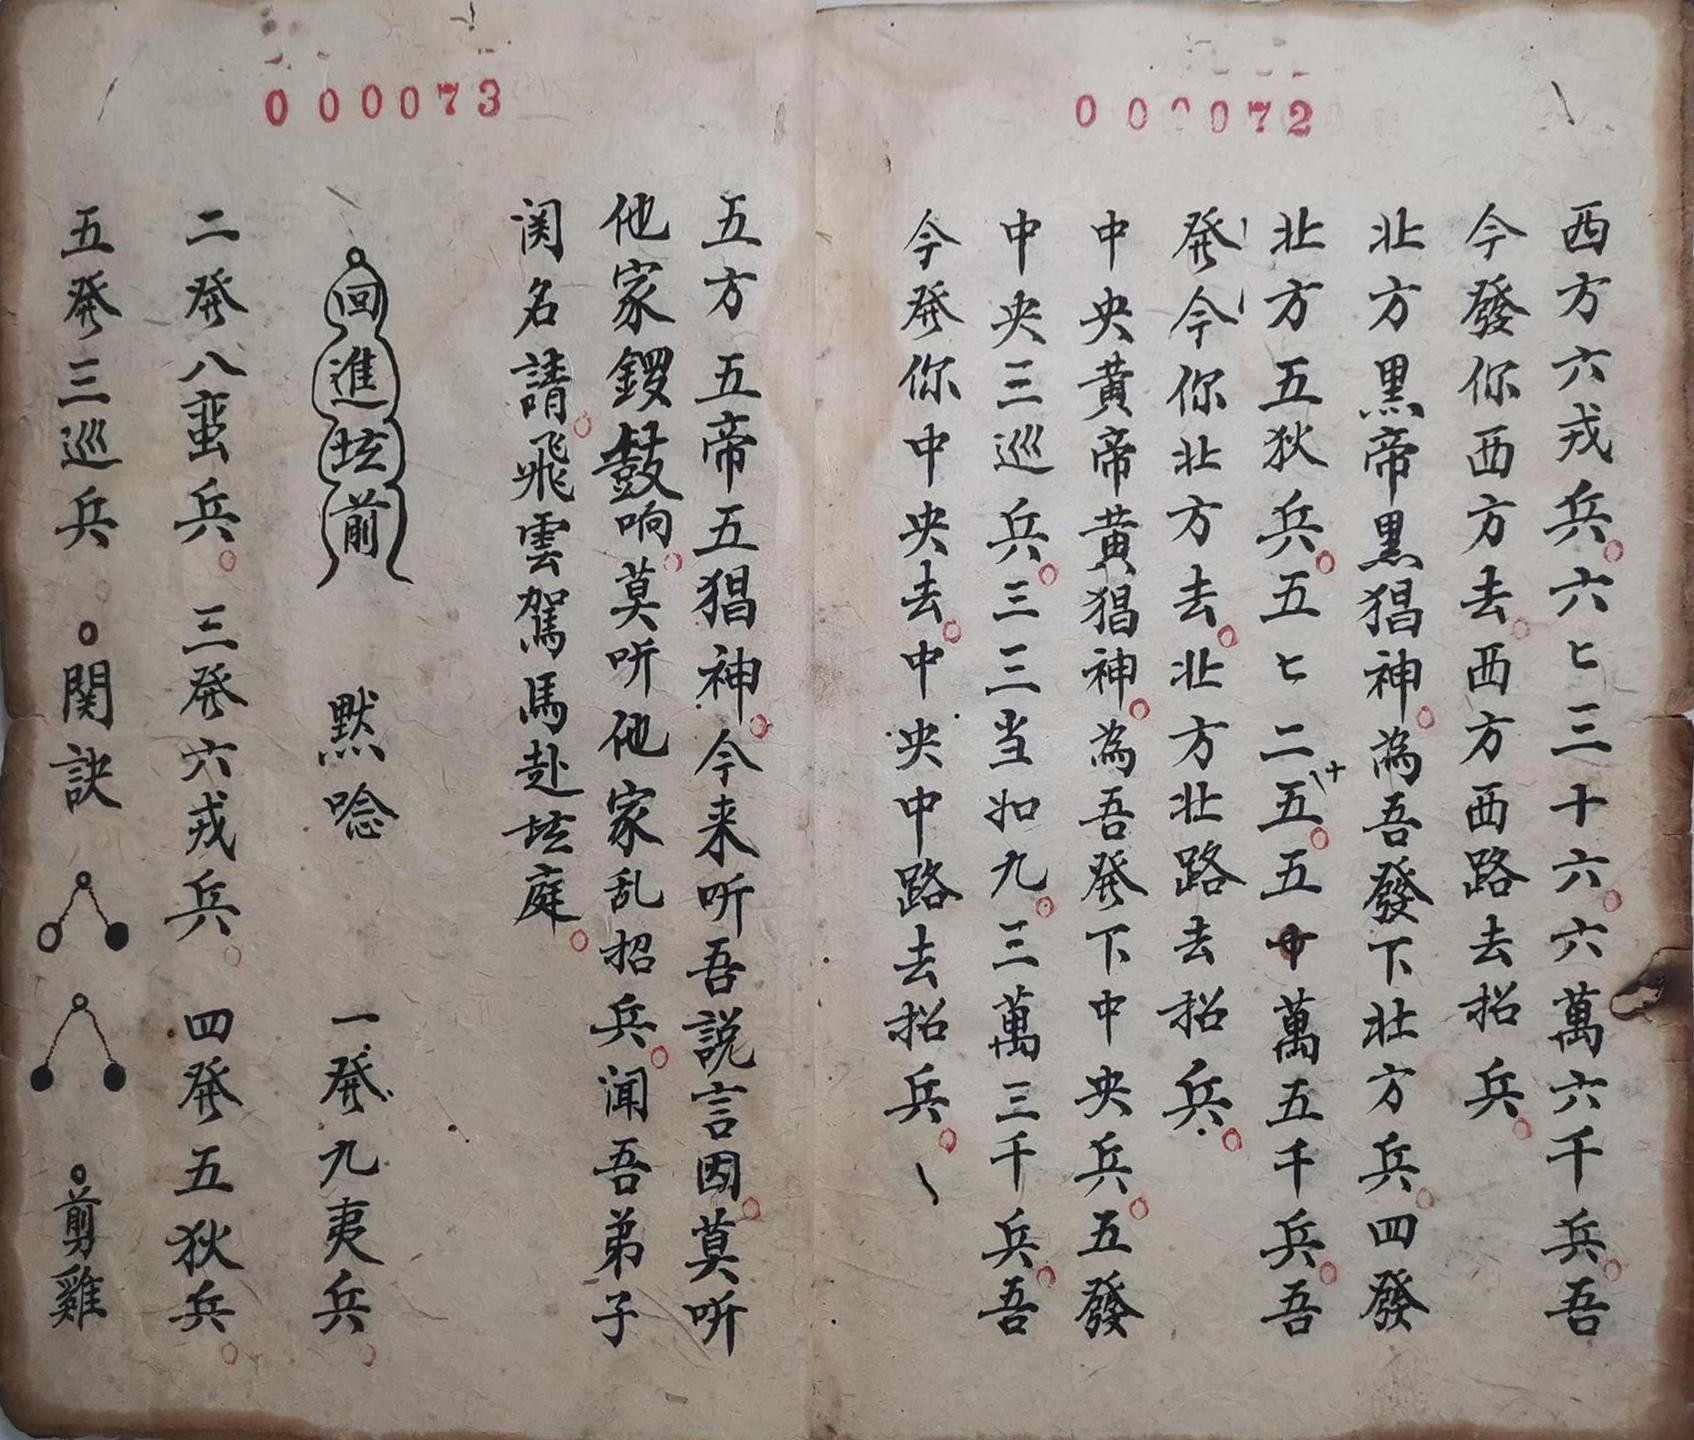 000072
西方六戎兵。六七三十六。六萬六千兵。吾
今發你西方去。西方西路去招兵。
北方黑帝黑猖神。為吾發下北方兵。四發
北方五狄兵。五七二十五。五萬五千兵。吾
今発你北方去。北方北路去招兵。
中央黃帝黃猖神。為吾発下中央兵。五發
中央三巡兵。三三当如九。三萬三千兵。吾
今発你中央去。中央中路去招兵。
000073
五方五帝五猖神。今来听吾説言因。莫听
他家鑼鼓响。莫听他家乱招兵。闻吾弟子
関名請。飛雲駕馬赴坛庭。
回進坛前 默唸 一発九夷兵。
二発八蛮兵。三発六戎兵。四発五狄兵。
五発三巡兵。○関訣 ○剪雞